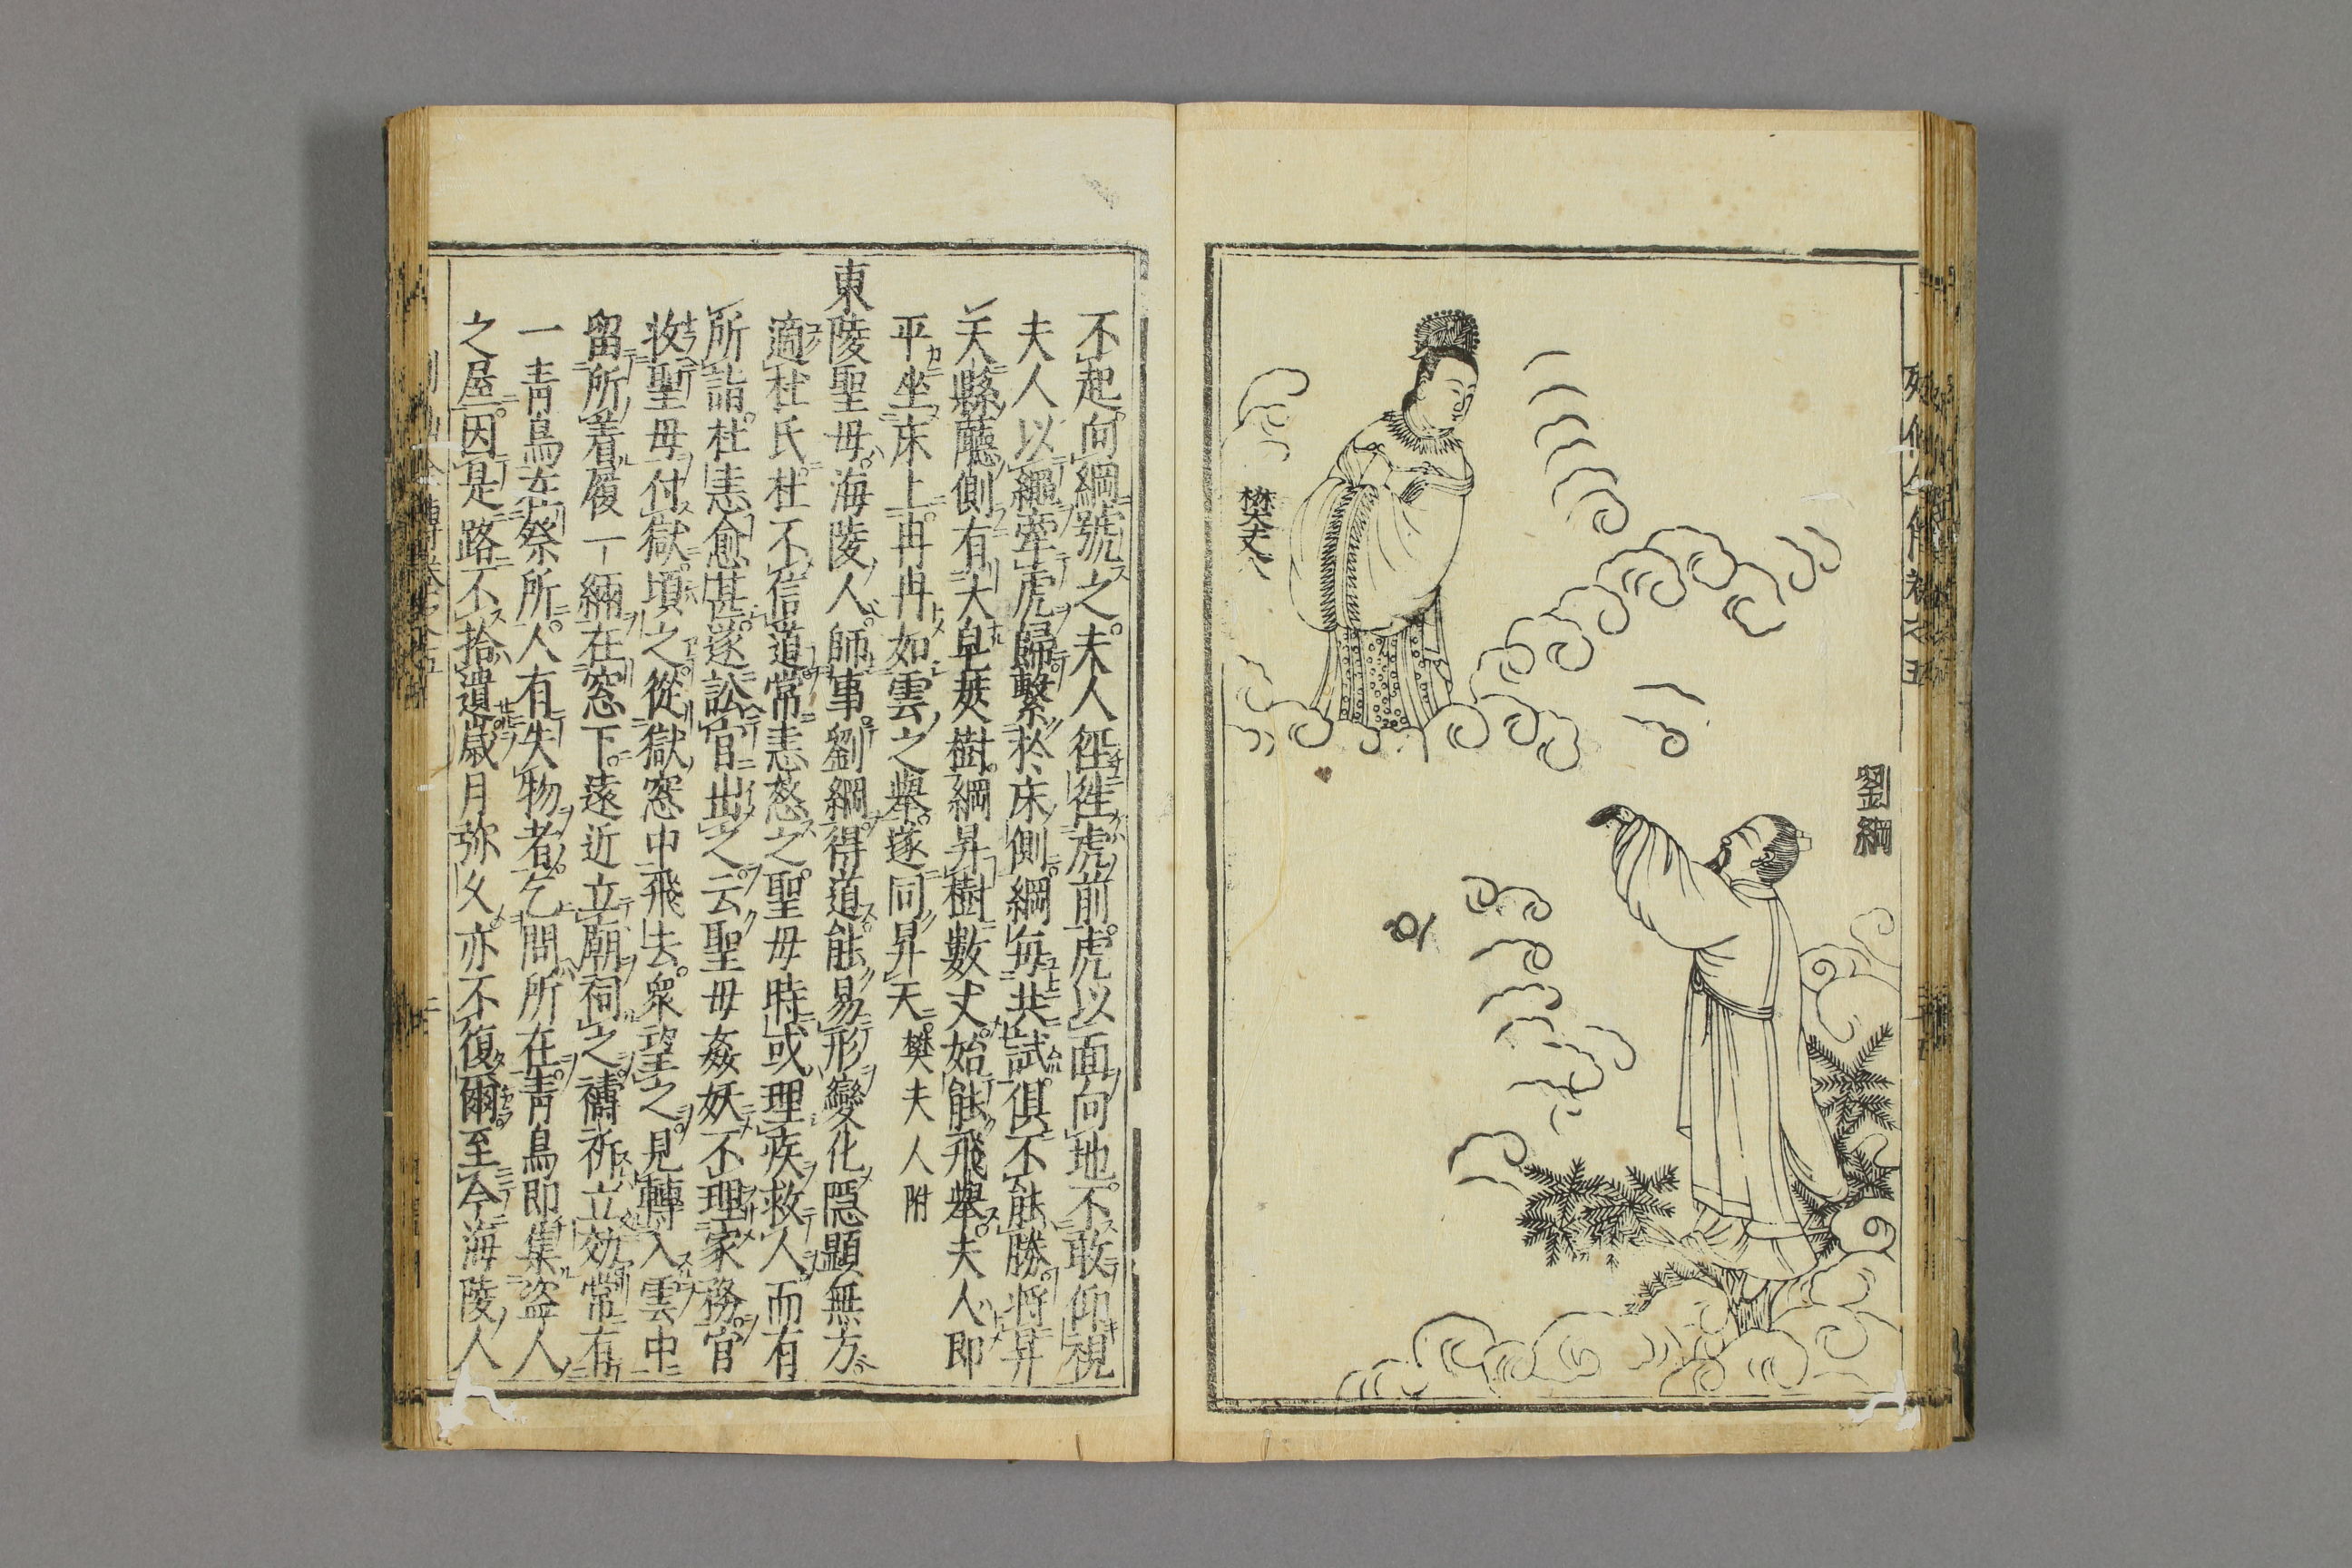 劉綱
樊夫人
不起向綱號之夫人徑徃虎前虎以面向地不敢仰視
夫人以繩牽虎歸繫於床側綱每共試俱不能勝將昇
天縣廳側有大皂莢樹綱昇樹數丈始能飛舉夫人即
平坐床上冉冉如雲之舉遂同昇天樊夫人附
東陵聖毋海陵人師事劉綱得道能易形變化隠顯無方
適杜氏杜不信道常恚怒之聖毋時或理疾救人而有
所詣杜恚愈甚遂訟官出之云聖毋姦妖不理家務官
收聖毋付獄頃之從獄窓中飛去衆望之見轉入雲中
留所着履一緉在窓下遠近立廟祠之禱祈立効常有
一青鳥在祭所人有失物者乞問所在青鳥即集盗人
之屋因是路不拾遺歳月弥久亦不復爾至今海陵人